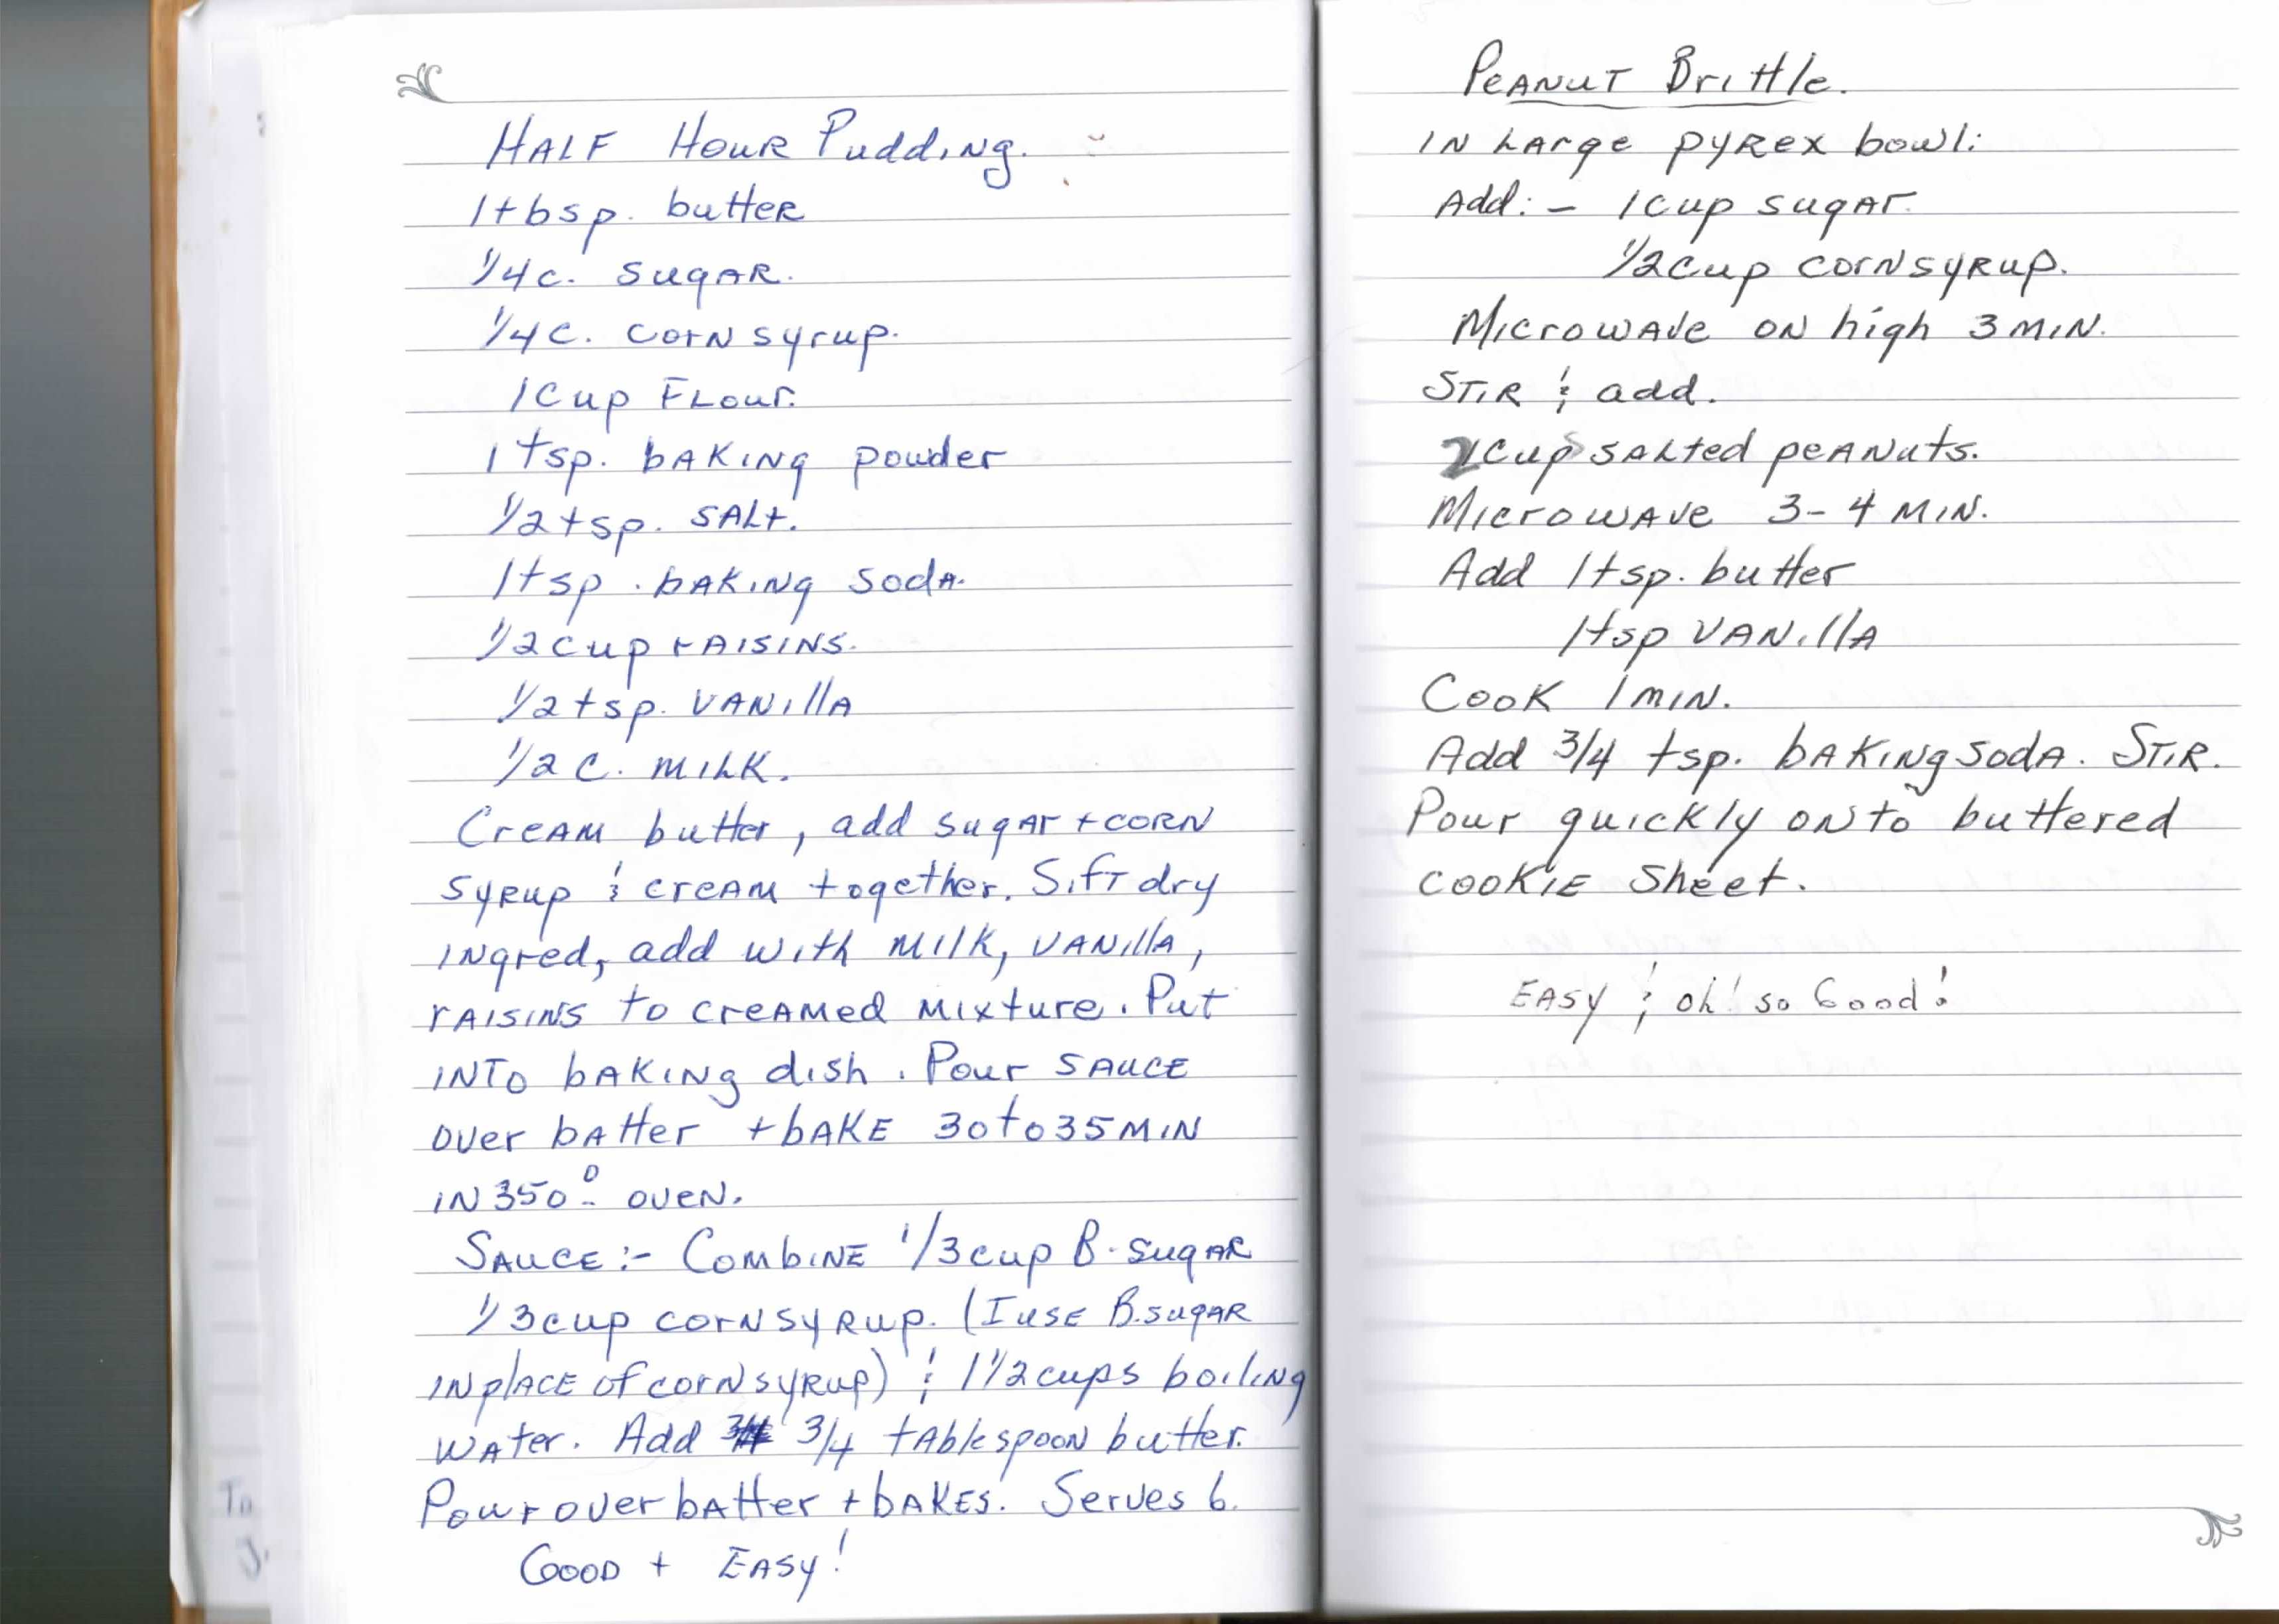 Half Hour Pudding.
1 tbsp. butter
1/4 c. sugar.
1/4 c. corn syrup.
1 cup Flour.
1 tsp. baking powder
1/2 tsp. salt.
1 tsp. baking soda.
1/2 cup raisins.
1/2 tsp. vanilla
1/2 c. milk.
Cream butter, add sugar + corn
syrup & cream together. Sift dry
ingred, add with milk, vanilla,
raisins to creamed mixture. Put
into baking dish. Pour sauce
over batter + bake 30 to 35 min
in 350° oven.
Sauce:- Combine 1/3 cup B. sugar
1/3 cup corn syrup. (I use B. sugar
in place of corn syrup) & 1 1/2 cups boiling
water. Add 3/4 tablespoon butter.
Pour over batter + bakes. Serves 6.
Good + Easy!
Peanut Brittle.
In large pyrex bowl:
Add:- 1 cup sugar.
1/2 cup corn syrup.
Microwave on high 3 min.
Stir & add.
2 cups salted peanuts.
Microwave 3-4 min.
Add 1 tsp. butter
1 tsp vanilla
Cook 1 min.
Add 3/4 tsp. baking soda. Stir.
Pour quickly onto buttered
cookie sheet.
Easy & oh! so Good!
To